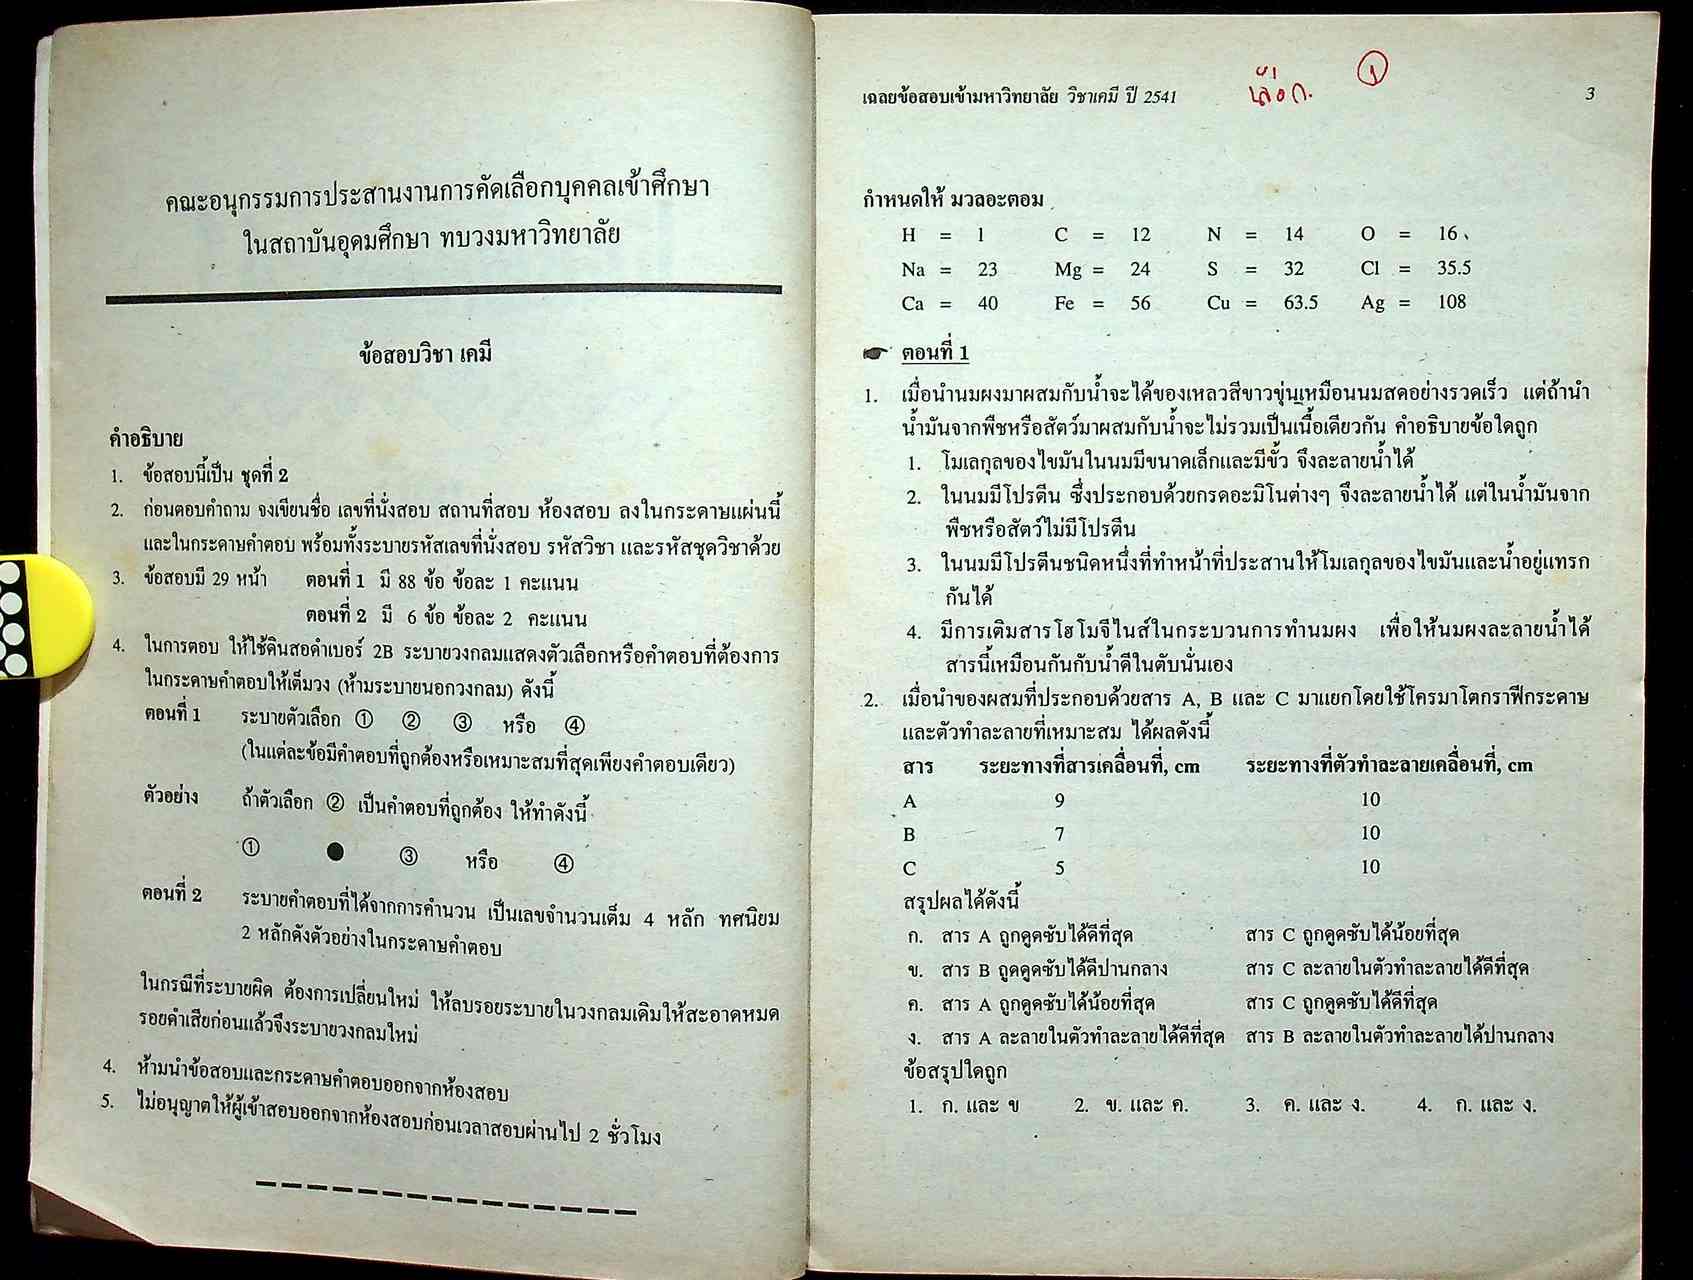 คณะอนุกรรมการประสานงานการคัดเลือกบุคคลเข้าศึกษา
ในสถาบันอุดมศึกษา ทบวงมหาวิทยาลัย
ข้อสอบวิชา เคมี
คำอธิบาย
1. ข้อสอบนี้เป็น ชุดที่ 2
2. ก่อนตอบคำถาม จงเขียนชื่อ เลขที่นั่งสอบ สถานที่สอบ ห้องสอบ ลงในกระดาษแผ่นนี้
และในกระดาษคำตอบ พร้อมทั้งระบายรหัสเลขที่นั่งสอบ รหัสวิชา และรหัสชุดวิชาด้วย
3. ข้อสอบมี 29 หน้า ตอนที่ 1 มี 88 ข้อ ข้อละ 1 คะแนน
ตอนที่ 2 มี 6 ข้อ ข้อละ 2 คะแนน
4. ในการตอบ ให้ใช้ดินสอดำเบอร์ 2B ระบายวงกลมแสดงตัวเลือกหรือคำตอบที่ต้องการ
ในกระดาษคำตอบให้เต็มวง (ห้ามระบายนอกวงกลม) ดังนี้
ตอนที่ 1 ระบายตัวเลือก ① ② ③ หรือ ④
(ในแต่ละข้อมีคำตอบที่ถูกต้องหรือเหมาะสมที่สุดเพียงคำตอบเดียว)
ตัวอย่าง ถ้าตัวเลือก ② เป็นคำตอบที่ถูกต้อง ให้ทำดังนี้
① ● ③ หรือ ④
ตอนที่ 2 ระบายคำตอบที่ได้จากการคำนวน เป็นเลขจำนวนเต็ม 4 หลัก ทศนิยม
2 หลักดังตัวอย่างในกระดาษคำตอบ
ในกรณีที่ระบายผิด ต้องการเปลี่ยนใหม่ ให้ลบรอยระบายในวงกลมเดิมให้สะอาดหมด
รอยดำเสียก่อนแล้วจึงระบายวงกลมใหม่
4. ห้ามนำข้อสอบและกระดาษคำตอบออกจากห้องสอบ
5. ไม่อนุญาตให้ผู้เข้าสอบออกจากห้องสอบก่อนเวลาสอบผ่านไป 2 ชั่วโมง
เฉลยข้อสอบเข้ามหาวิทยาลัย วิชาเคมี ปี 2541 3
①
กำหนดให้ มวลอะตอม
H = 1 C = 12 N = 14 O = 16
Na = 23 Mg = 24 S = 32 Cl = 35.5
Ca = 40 Fe = 56 Cu = 63.5 Ag = 108
ตอนที่ 1
1. เมื่อนำนมผงมาผสมกับน้ำจะได้ของเหลวสีขาวขุ่นเหมือนนมสดอย่างรวดเร็ว แต่ถ้านำ
น้ำมันจากพืชหรือสัตว์มาผสมกับน้ำจะไม่รวมเป็นเนื้อเดียวกัน คำอธิบายข้อใดถูก
1. โมเลกุลของไขมันในนมมีขนาดเล็กและมีขั้ว จึงละลายน้ำได้
2. ในนมมีโปรตีน ซึ่งประกอบด้วยกรดอะมิโนต่างๆ จึงละลายน้ำได้ แต่ในน้ำมันจาก
พืชหรือสัตว์ไม่มีโปรตีน
3. ในนมมีโปรตีนชนิดหนึ่งที่ทำหน้าที่ประสานให้โมเลกุลของไขมันและน้ำอยู่แทรก
กันได้
4. มีการเติมสารโฮโมจีไนส์ในกระบวนการทำนมผง เพื่อให้นมผงละลายน้ำได้
สารนี้เหมือนกันกับน้ำดีในตับนั่นเอง
2. เมื่อนำของผสมที่ประกอบด้วยสาร A, B และ C มาแยกโดยใช้โครมาโตกราฟีกระดาษ
และตัวทำละลายที่เหมาะสม ได้ผลดังนี้
สาร ระยะทางที่สารเคลื่อนที่, cm ระยะทางที่ตัวทำละลายเคลื่อนที่, cm
A 9 10
B 7 10
C 5 10
สรุปผลได้ดังนี้
ก. สาร A ถูกดูดซับได้ดีที่สุด สาร C ถูกดูดซับได้น้อยที่สุด
ข. สาร B ถูดดูดซับได้ดีปานกลาง สาร C ละลายในตัวทำละลายได้ดีที่สุด
ค. สาร A ถูกดูดซับได้น้อยที่สุด สาร C ถูกดูดซับได้ดีที่สุด
ง. สาร A ละลายในตัวทำละลายได้ดีที่สุด สาร B ละลายในตัวทำละลายได้ปานกลาง
ข้อสรุปใดถูก
1. ก. และ ข 2. ข. และ ค. 3. ค. และ ง. 4. ก. และ ง.